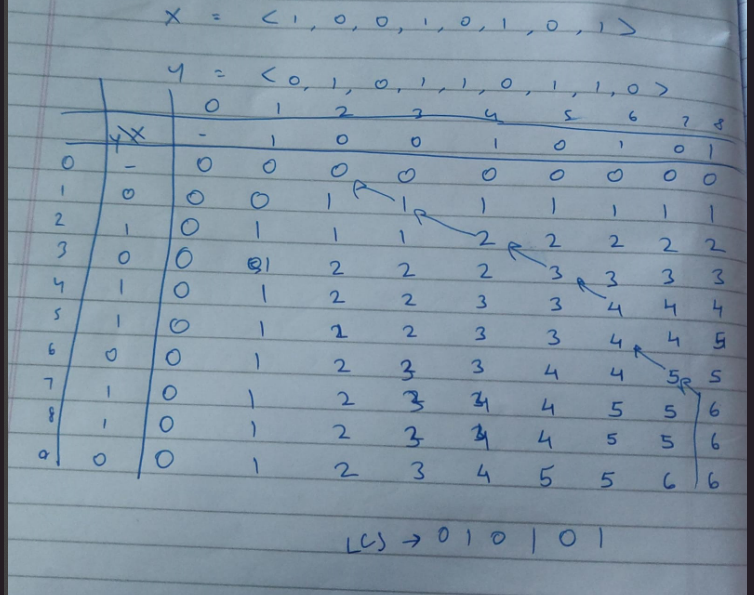 X = <1, 0, 0, 1, 0, 1, 0, 1>
Y = <0, 1, 0, 1, 1, 0, 1, 1, 0>
0 1 2 3 4 5 6 7 8
Y\X - 1 0 0 1 0 1 0 1
0 - 0 0 0 0 0 0 0 0 0
1 0 0 0 1 1 1 1 1 1 1
2 1 0 1 1 1 2 2 2 2 2
3 0 0 1 2 2 2 3 3 3 3
4 1 0 1 2 2 3 3 4 4 4
5 1 0 1 2 2 3 3 4 4 5
6 0 0 1 2 3 3 4 4 5 5
7 1 0 1 2 3 4 4 5 5 6
8 1 0 1 2 3 4 4 5 5 6
9 0 0 1 2 3 4 5 5 6 6
LCS → 0 1 0 1 0 1